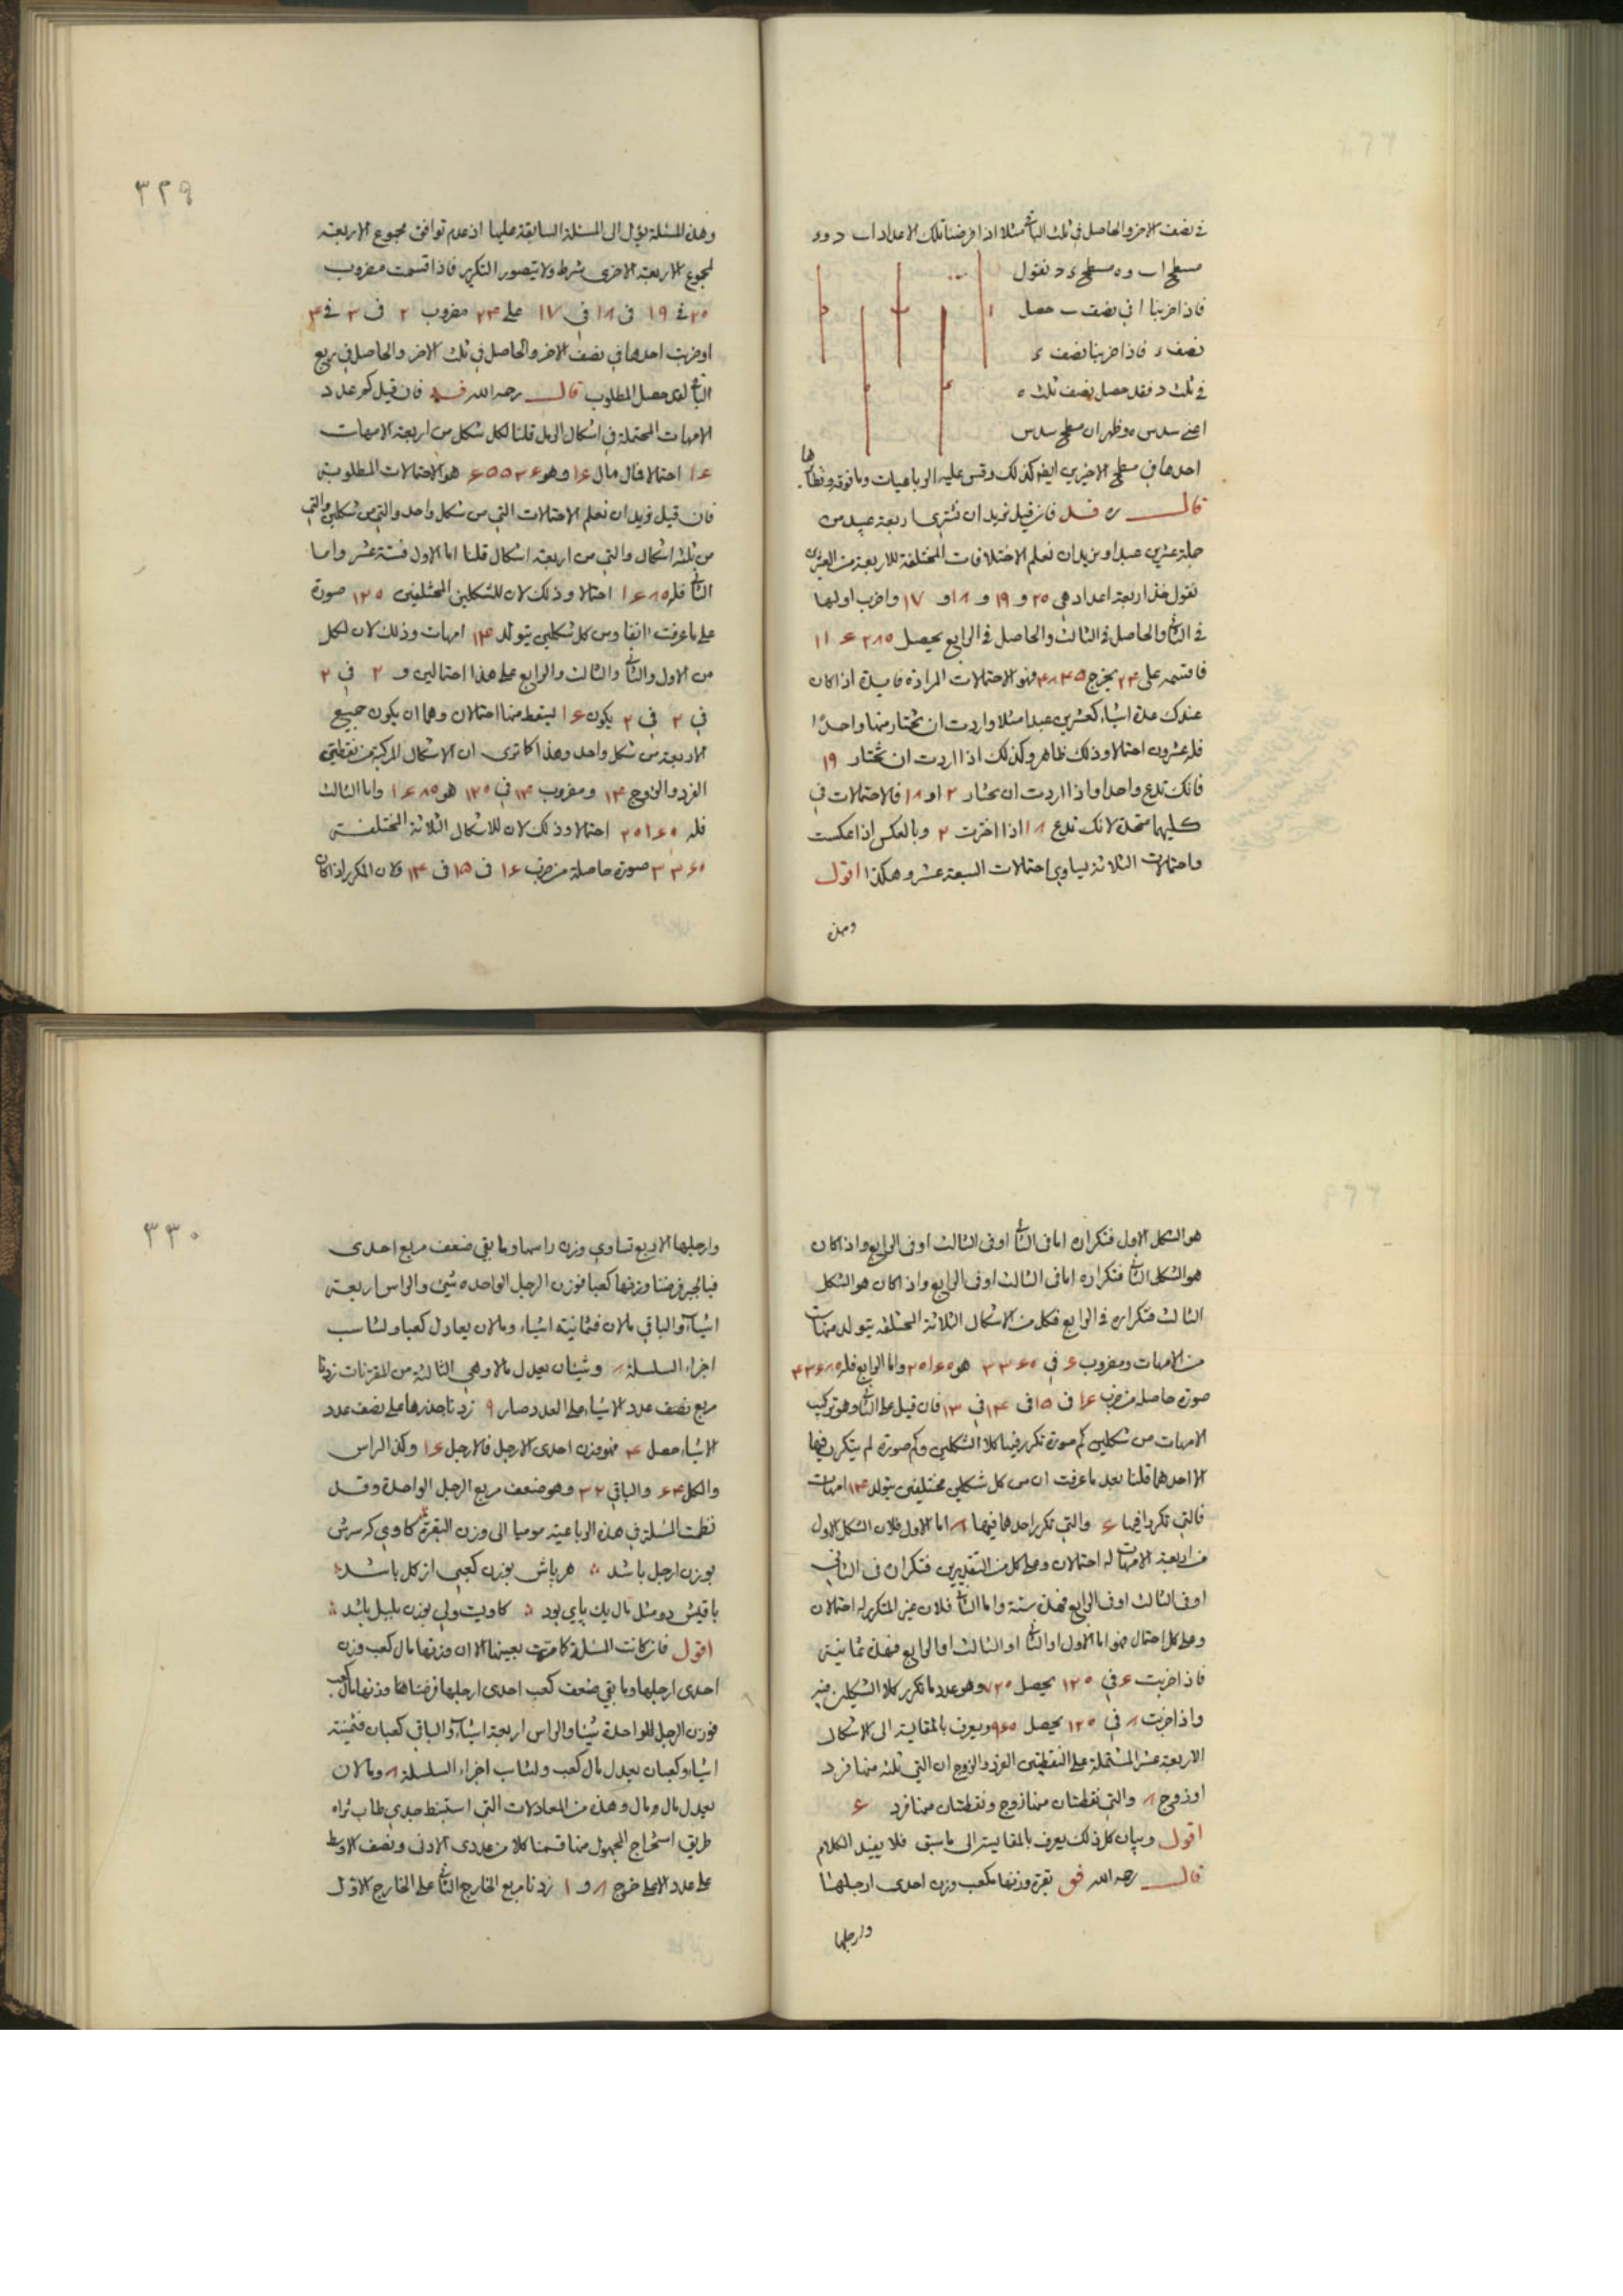 في نصف الاخر والحاصل في ثلث الباقي مثلا اذا فرضنا تلك الاعداد ا ب د و ء
مسطح ا ب و ه مسطح ء د نقول
فاذا ضربنا ا في نصف ب حصل
نصف ء فاذا ضربنا نصف ء
في ثلث د فقد حصل نصف ثلث ه
اعني سدس ه وظهر ان مسطح سدس
احدها في مسطح الاخيرين ايضا كذلك وقس عليه الرباعيات وما فوقه ونظائرها
قال ره فان قيل نريد ان نشتري اربعة عبيد من
جملة عشرين عبدا ونريد ان نعلم الاختلافات المختلفة للاربعة من العشرين
نقول خذ اربعة اعداد هي ٢٥ و ١٩ و ١٨ و ١٧ واضرب اولها
في الثاني والحاصل في الثالث والحاصل في الرابع يحصل ١١٦٢٨٥
فاقسمه على ٢٤ يخرج ٤٨٤٥ فهو الاحتمالات المرادة فايدة اذا كان
عندك عدة اشياء كعشرين عبدا مثلا واردت ان تختار منها واحدا
فله عشرون احتمالا وذلك ظاهر وكذلك اذا اردت ان تختار ١٩
فانك تدع واحدا واذا اردت ان تختار ٢ او ١٨ فالاحتمالات في
كليهما متحدة لانك تدع ١٨ اذا اخترت ٢ وبالعكس اذا عكست
واحتمالات الثلاثة يساوي احتمالات السبعة عشر وهكذا اقول
وهذه
٣٢٩
وهذه المسئلة يؤل الى المسئلة السابقة عليها اذ عدم توافق مجموع الاربعة
لمجموع الاربعة الاخرى شرط ولا يتصور التكرير فاذا قسمت مضروب
٢٥ في ١٩ في ١٨ في ١٧ على ٢٤ مضروب ٢ في ٣ في ٤
او ضربت احدها في نصف الاخر والحاصل في ثلث الاخر والحاصل في ربع
الباقي حصل المطلوب قال رحمه الله فان قيل كم عدد
الامهات المحتملة في اشكال الرمل قلنا لكل شكل من اربعة الامهات
١٦ احتمالا فمال مال ١٦ وهو ٦٥٥٣٦ هو الاحتمالات المطلوبة
فان قيل نريد ان نعلم الاحتمالات التي من شكل واحد والتي من شكلين والتي
من ثلثة اشكال والتي من اربعة اشكال قلنا اما الاول فستة عشر واما
الثاني فله ١٦٨٥ احتمالا وذلك لان للشكلين المختلفين ١٢٥ صورة
على ما عرفت انفا ومن كل شكلين يتولد ١٤ امهات وذلك لان لكل
من الاول والثاني والثالث والرابع على هذا احتمالين و ٢ في ٢
في ٢ في ٢ يكون ١٦ ليسقط منها احتمالان وهما ان يكون جميع
الاربعة من شكل واحد وهذا كما ترى ان الاشكال المركبة من نقطتي
الفرد والزوج ١٤ ومضروب ١٤ في ١٢٥ هو ١٦٨٥ واما الثالث
فله ٢٥١٦٥ احتمالا وذلك لان للاشكال الثلاثة المختلفة
٣٣٦٥ صورة حاصلة من ضرب ١٦ في ١٥ في ١٤ فلان المكرر اذا كان
هو الشكل الاول فتكراره اما في الثاني او في الثالث او في الرابع واذا كان
هو الشكل الثاني فتكراره اما في الثالث او في الرابع واذا كان هو الشكل
الثالث فتكراره في الرابع فكل من الاشكال الثلاثة المختلفة يتولد منها ست
من الامهات ومضروب ٦ في ٣٣٦٥ هو ٢٥١٦٥ واما الرابع فله ٤٣٦٨٥
صورة حاصلة من ضرب ١٦ في ١٥ في ١٤ في ١٣ فان قيل على الثاني وهو تركيب
الامهات من شكلين كم صورة تكرر فيها كلا الشكلين وكم صورة لم يتكرر فيها
الا احدهما قلنا بعد ما عرفت ان من كل شكلين مختلفين يتولد ١٤ امهات
فالتي تكررا فيها ٦ والتي تكرر احدهما فيها ٨ اما الاول فلان الشكل الاول
من اربعة الامهات له احتمالان وعلى كل من التقديرين فتكراره في الثاني
او في الثالث او في الرابع فهذه ستة واما الثاني فلان غير المتكرر له احتمالان
وعلى كل احتمال فهو اما الاول او الثاني او الثالث او الرابع فهذه ثمانية
فاذا ضربت ٦ في ١٢٥ يحصل ٧٢٥ وهو عدد ما تكرر كلا الشكلين فيه
واذا ضربت ٨ في ١٢٥ يحصل ٩٦٥ ويعرف بالمقايسة الى الاشكال
الاربعة عشر المشتملة على النقطتين الفرد والزوج ان التي ثلثة منها فرد
او زوج ٨ والتي نقطتان منها زوج ونقطتان منها فرد ٦
اقول وبيان كل ذلك يعرف بالمقايسة الى ما سبق فلا يفيد الكلام
قال رحمه الله فق بقرة وزنها مكعب وزن احدى ارجلها
وارجلها
٣٣٠
وارجلها الاربع تساوي وزن راسها وما بقي ضعف مربع احدى
فبالجبر فرضنا وزنها كعبا فوزن الرجل الواحدة شئ والراس اربعة
اشياء والباقي مالان فثمانية اشياء ومالان يعادل كعبا ولتناسب
اجزاء السلسلة ٨ وشيئان يعدل مالا وهي الثالثة من المقترنات زدنا
مربع نصف عدد الاشياء على العدد صار ٩ زدنا جذرها على نصف عدد
الاشياء حصل ٤ فهو وزن احدى الارجل فالارجل ١٦ وكذا الراس
والكل ٦٤ والباقي ٣٢ وهو ضعف مربع الرجل الواحدة وقد
نظمت المسئلة في هذه الرباعية موميا الى وزن البقرة كاوي كه سرش
بوزن ارجل باشد هر پاش بوزن كعبى از كل باشد
باقيش دو مثل مال يك پاي بود كاويست ولي بوزن بلبل باشد
اقول فان كانت المسئلة كما مرت بعينها الا ان وزنها مال كعب وزن
احدى ارجلها وما بقي ضعف كعب احدى ارجلها فرضناها وزنها مال كعب
فوزن الرجل الواحدة شيئا والراس اربعة اشياء والباقي كعبان فثمنية
اشياء وكعبان يعدل مال كعب ولتناسب اجزاء السلسلة ٨ ومالان
يعدل مال ومال وهذه من المعادلات التي استنبط جدي طاب ثراه
طريق استخراج المجهول منها قسمنا كلا من عددي الادنى ونصف الاوسط
على عدد الاعلى خرج ٨ و ١ زدنا مربع الخارج الثاني على الخارج الاول